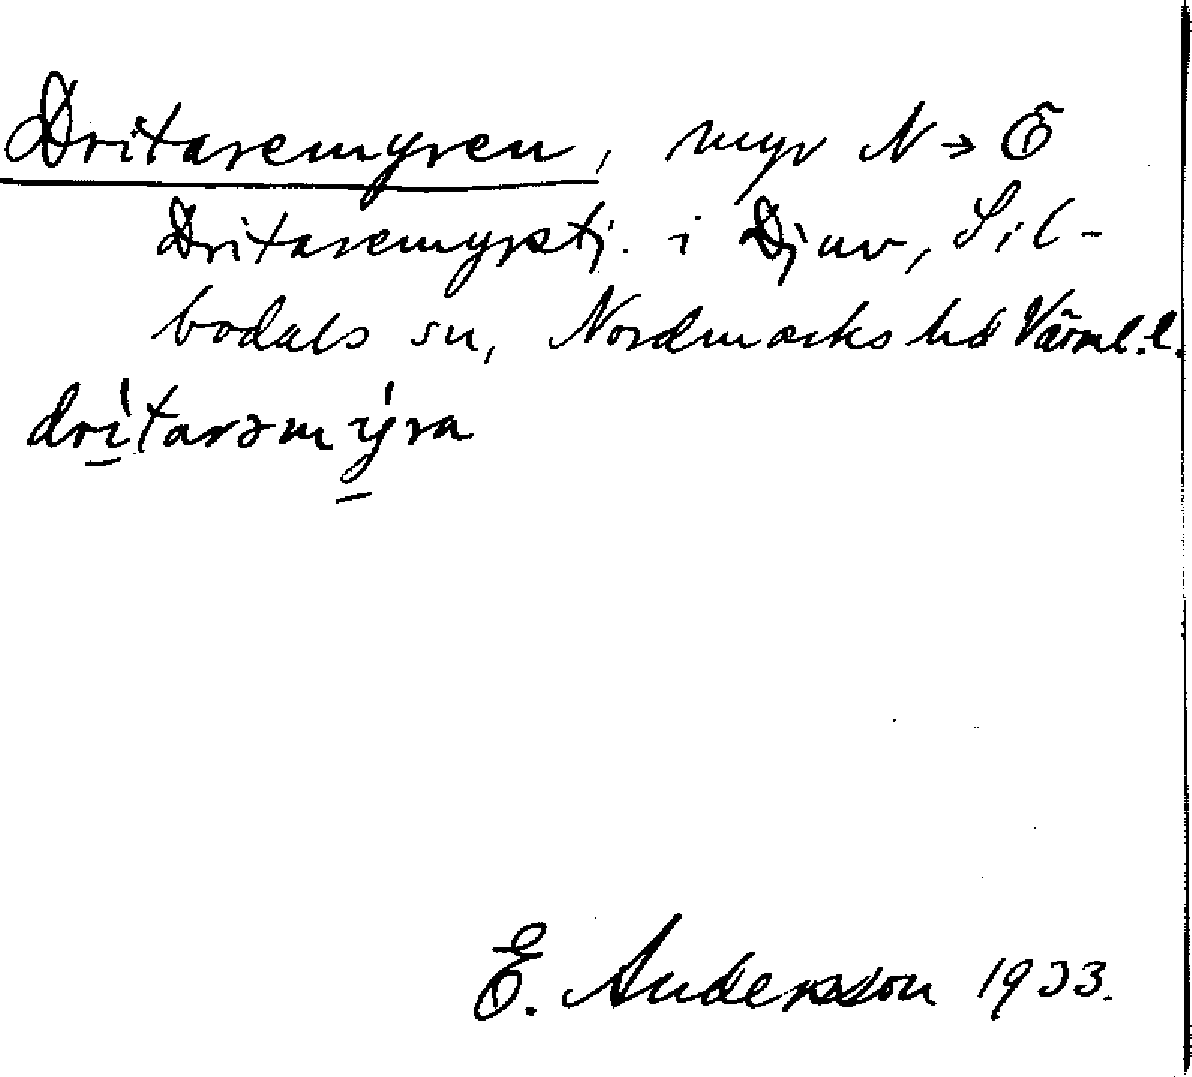 Dritaremyren, myr N → Ö
Dritaremyrstj. i Djuv, Sil-
bodals sn, Nordmarks hd Värml. l.
dritarəmýra
E. Andersson 1933.